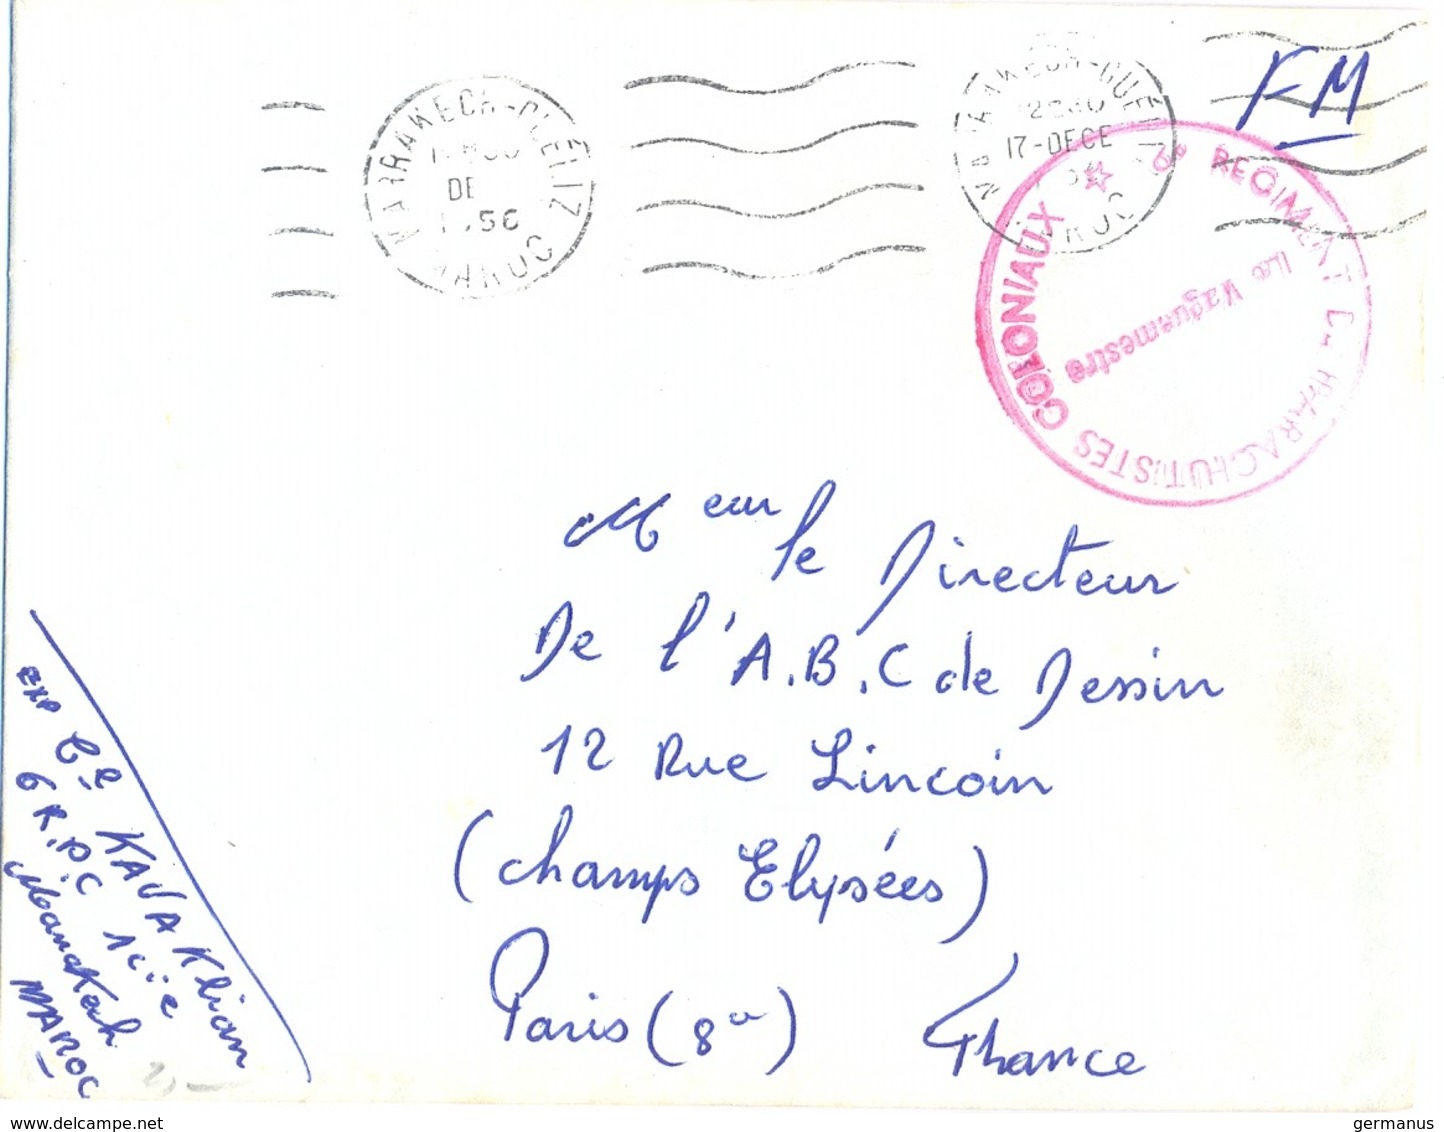 FM
MARRAKECH-GUÉLIZ
DE
MAROC
MARRAKECH-GUÉLIZ
17-DECE
MAROC
6e REGIMENT DE PARACHUTISTES COLONIAUX
Le Vaguemestre
Meur le Directeur
De l'A.B.C de Dessin
12 Rue Lincoin
(Champs Elysées)
Paris (8e)
France
exp Cel KAVAKlian
6 R.P.C 1cie
MAROC
www.delcampe.net
germanus